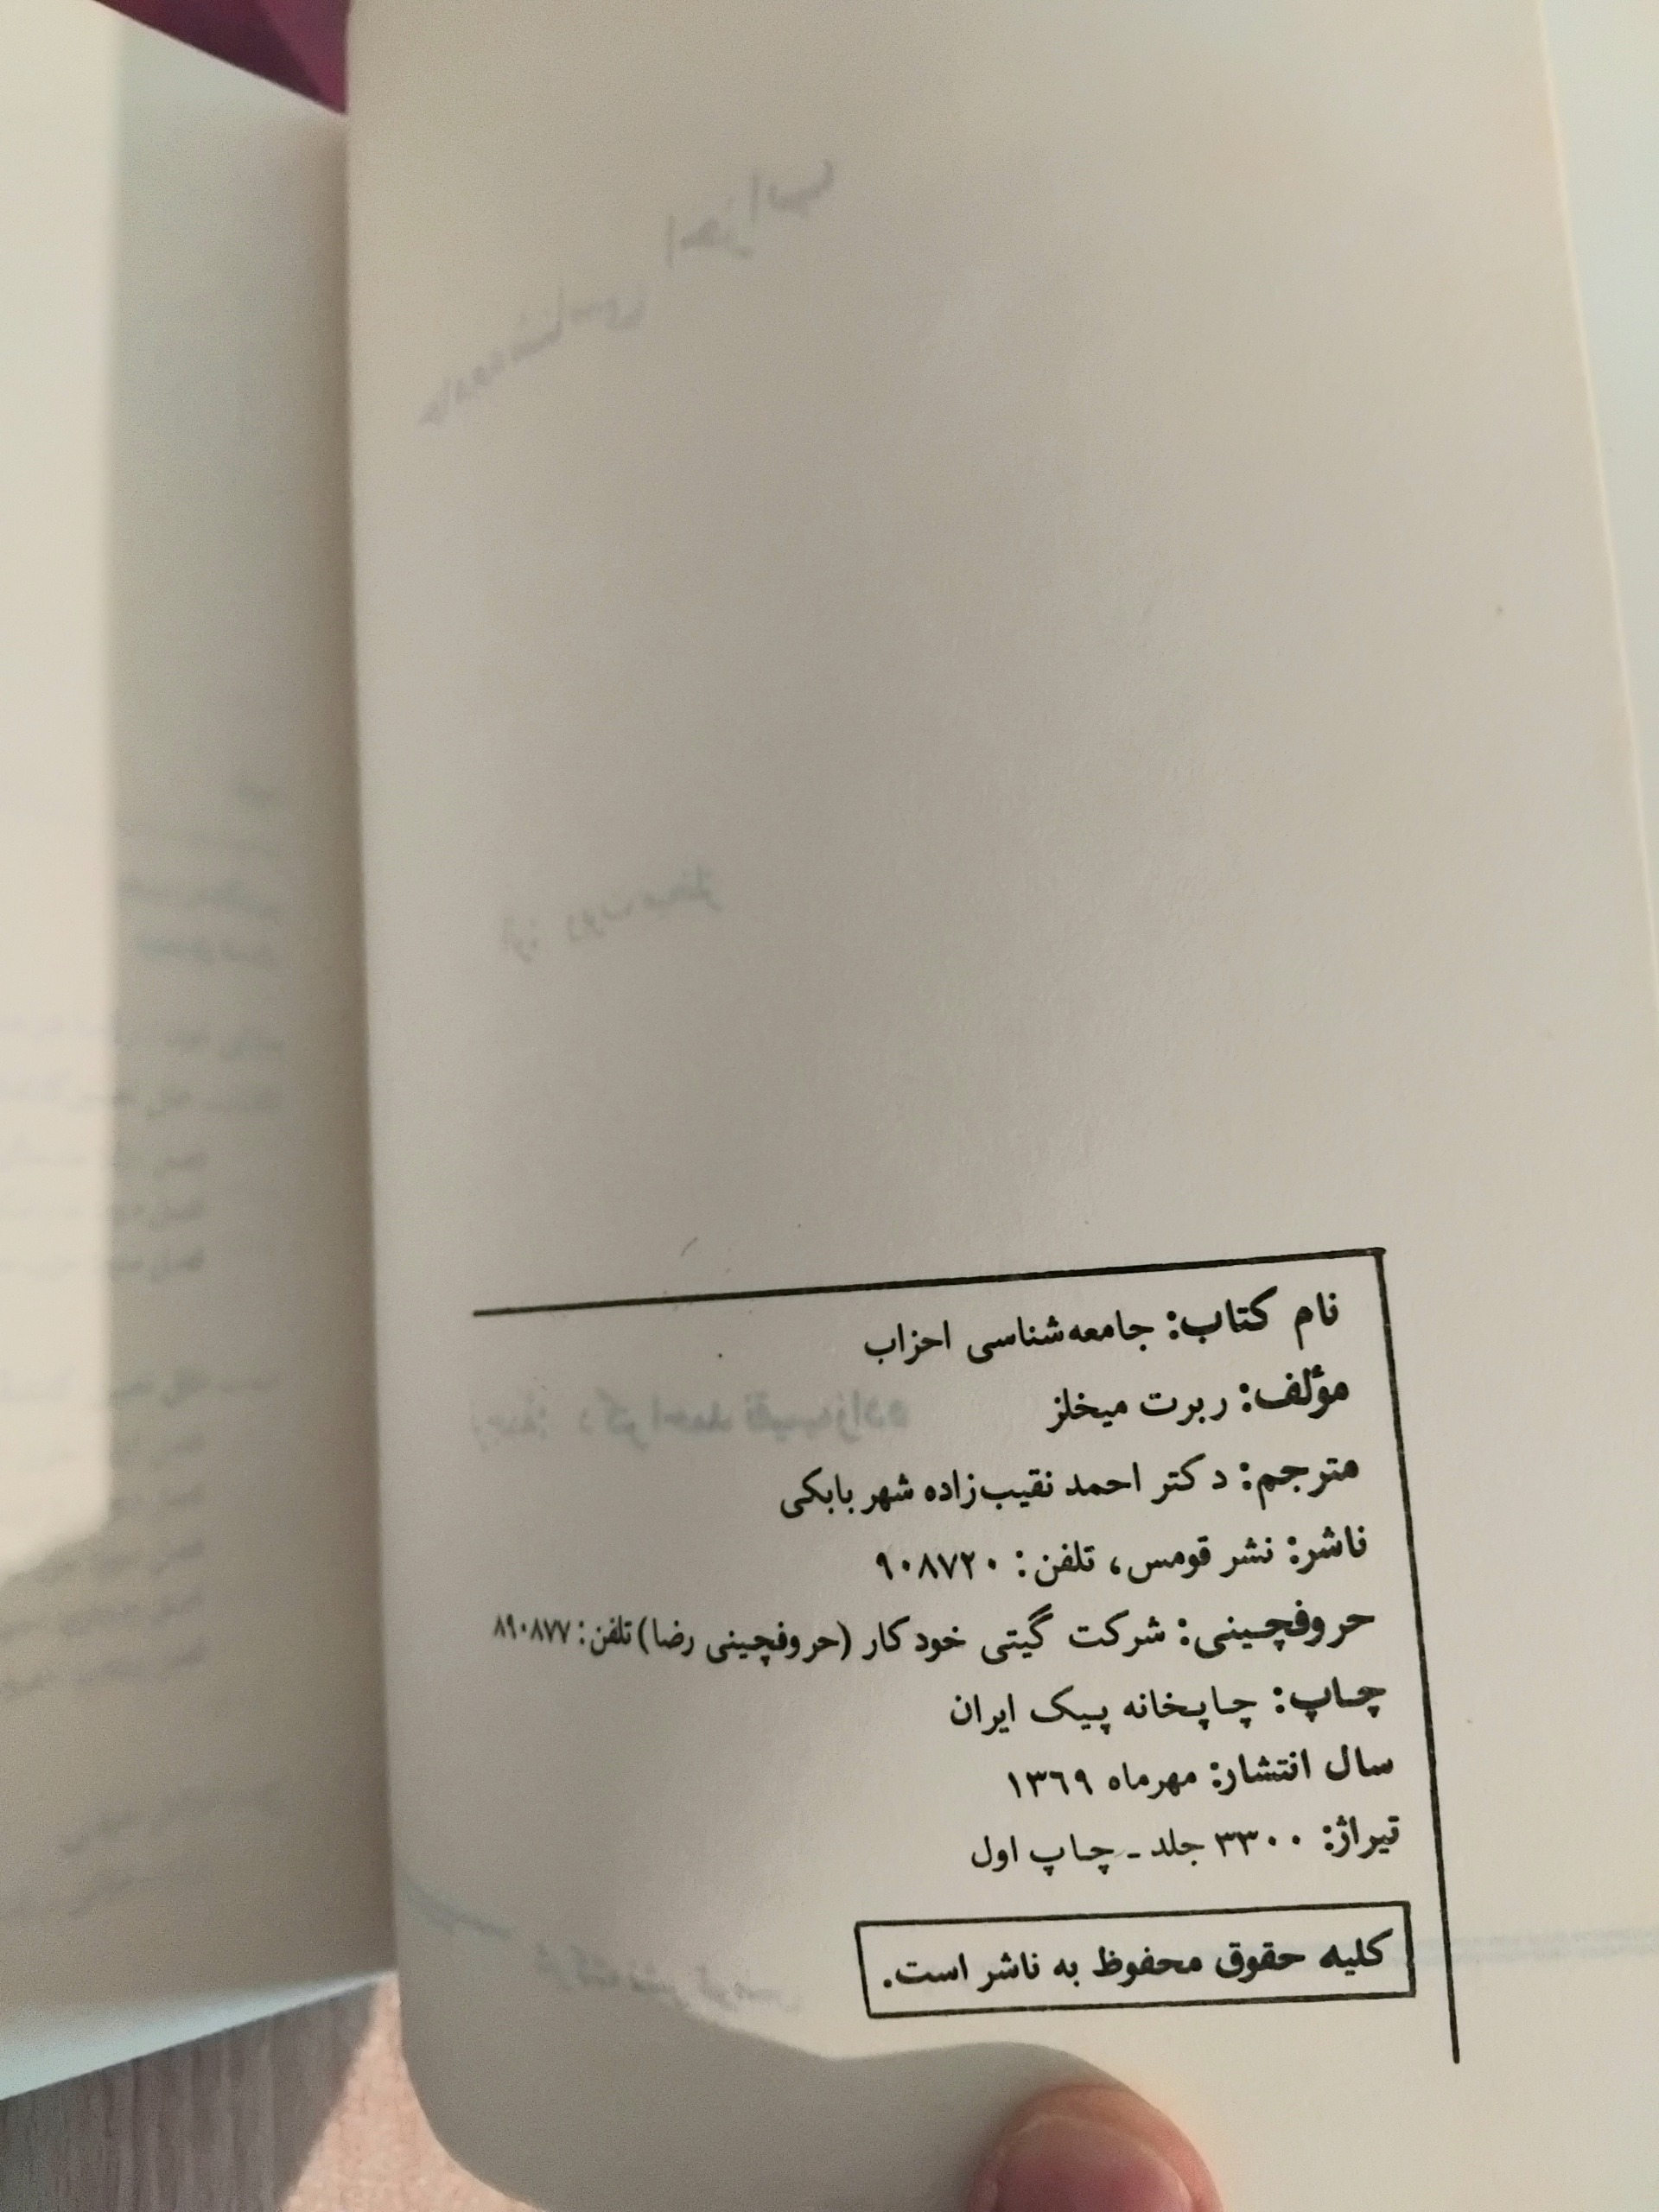 نام کتاب: جامعه‌شناسی احزاب
مؤلف: ربرت میخلز
مترجم: دکتر احمد نقیب‌زاده شهربابکی
ناشر: نشر قومس، تلفن: ۹۰۸۷۲۰
حروفچینی: شرکت گیتی خودکار (حروفچینی رضا) تلفن: ۸۹۰۸۷۷
چاپ: چاپخانه پیک ایران
سال انتشار: مهرماه ۱۳۶۹
تیراژ: ۳۳۰۰ جلد ـ چاپ اول
کلیه حقوق محفوظ به ناشر است.